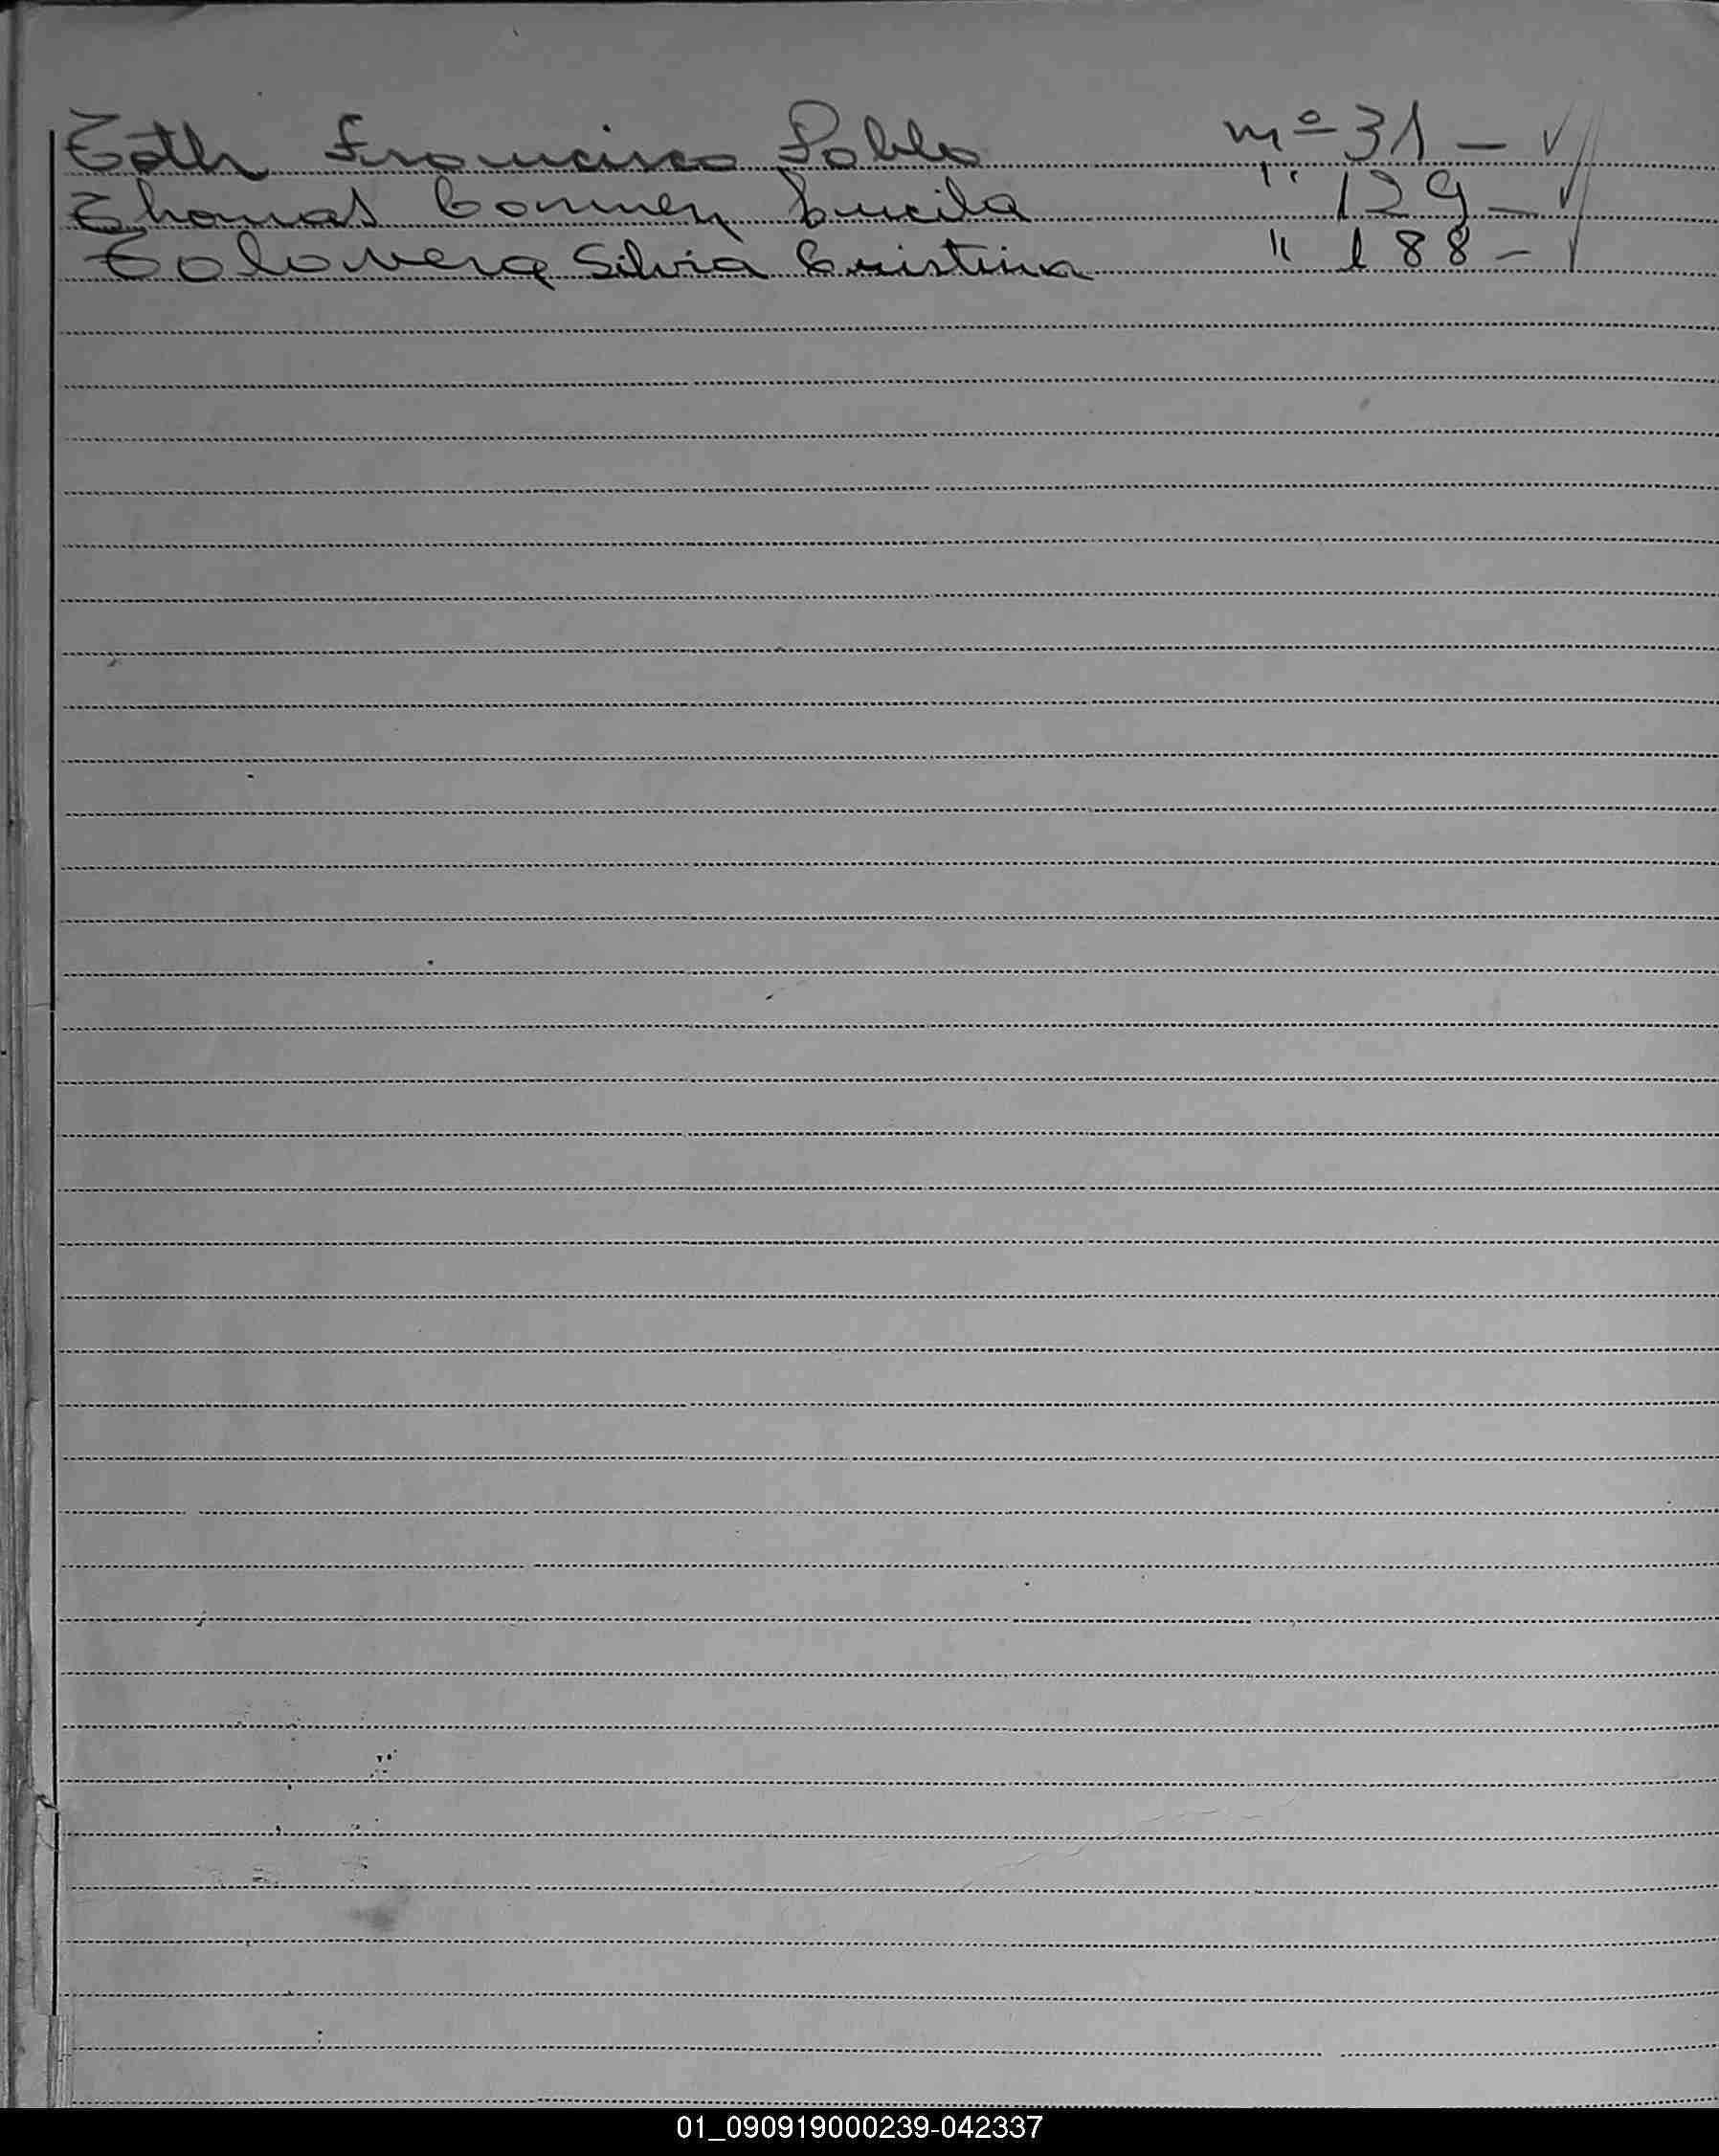 Toth Francisco Pablo nº 31 -
Thomas Carmen Lucila " 129 -
Talavera Silvia Cristina " 188 -
01_090919000239-042337